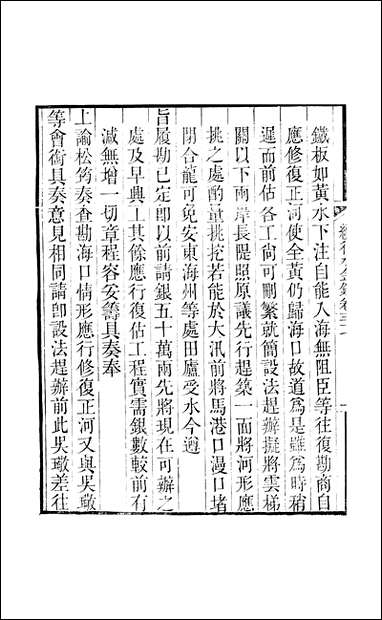 鐵板如黃水下注自能入海無阻臣等往復勘商自
應修復正河使全黃仍歸海口故道爲是雖爲時稍
遲而前估各工尙可刪繁就簡設法趕辦擬將雲梯
關以下兩岸長隄照原議先行趕築一面將河形應
挑之處酌量挑挖若能於大汛前將馬港口漫口堵
閉合龍可免安東海州等處田廬受水今遵
旨履勘已定卽以前請銀五十萬兩先將現在可辦之
處及早興工其餘應行復估工程實需銀數較前有
減無增一切章程容妥籌具奏奉
上諭松筠奏查勘海口情形應行修復正河又與吳璥
等會銜具奏意見相同請卽設法趕辦前此吳璥差往
續行水金鑑卷三十